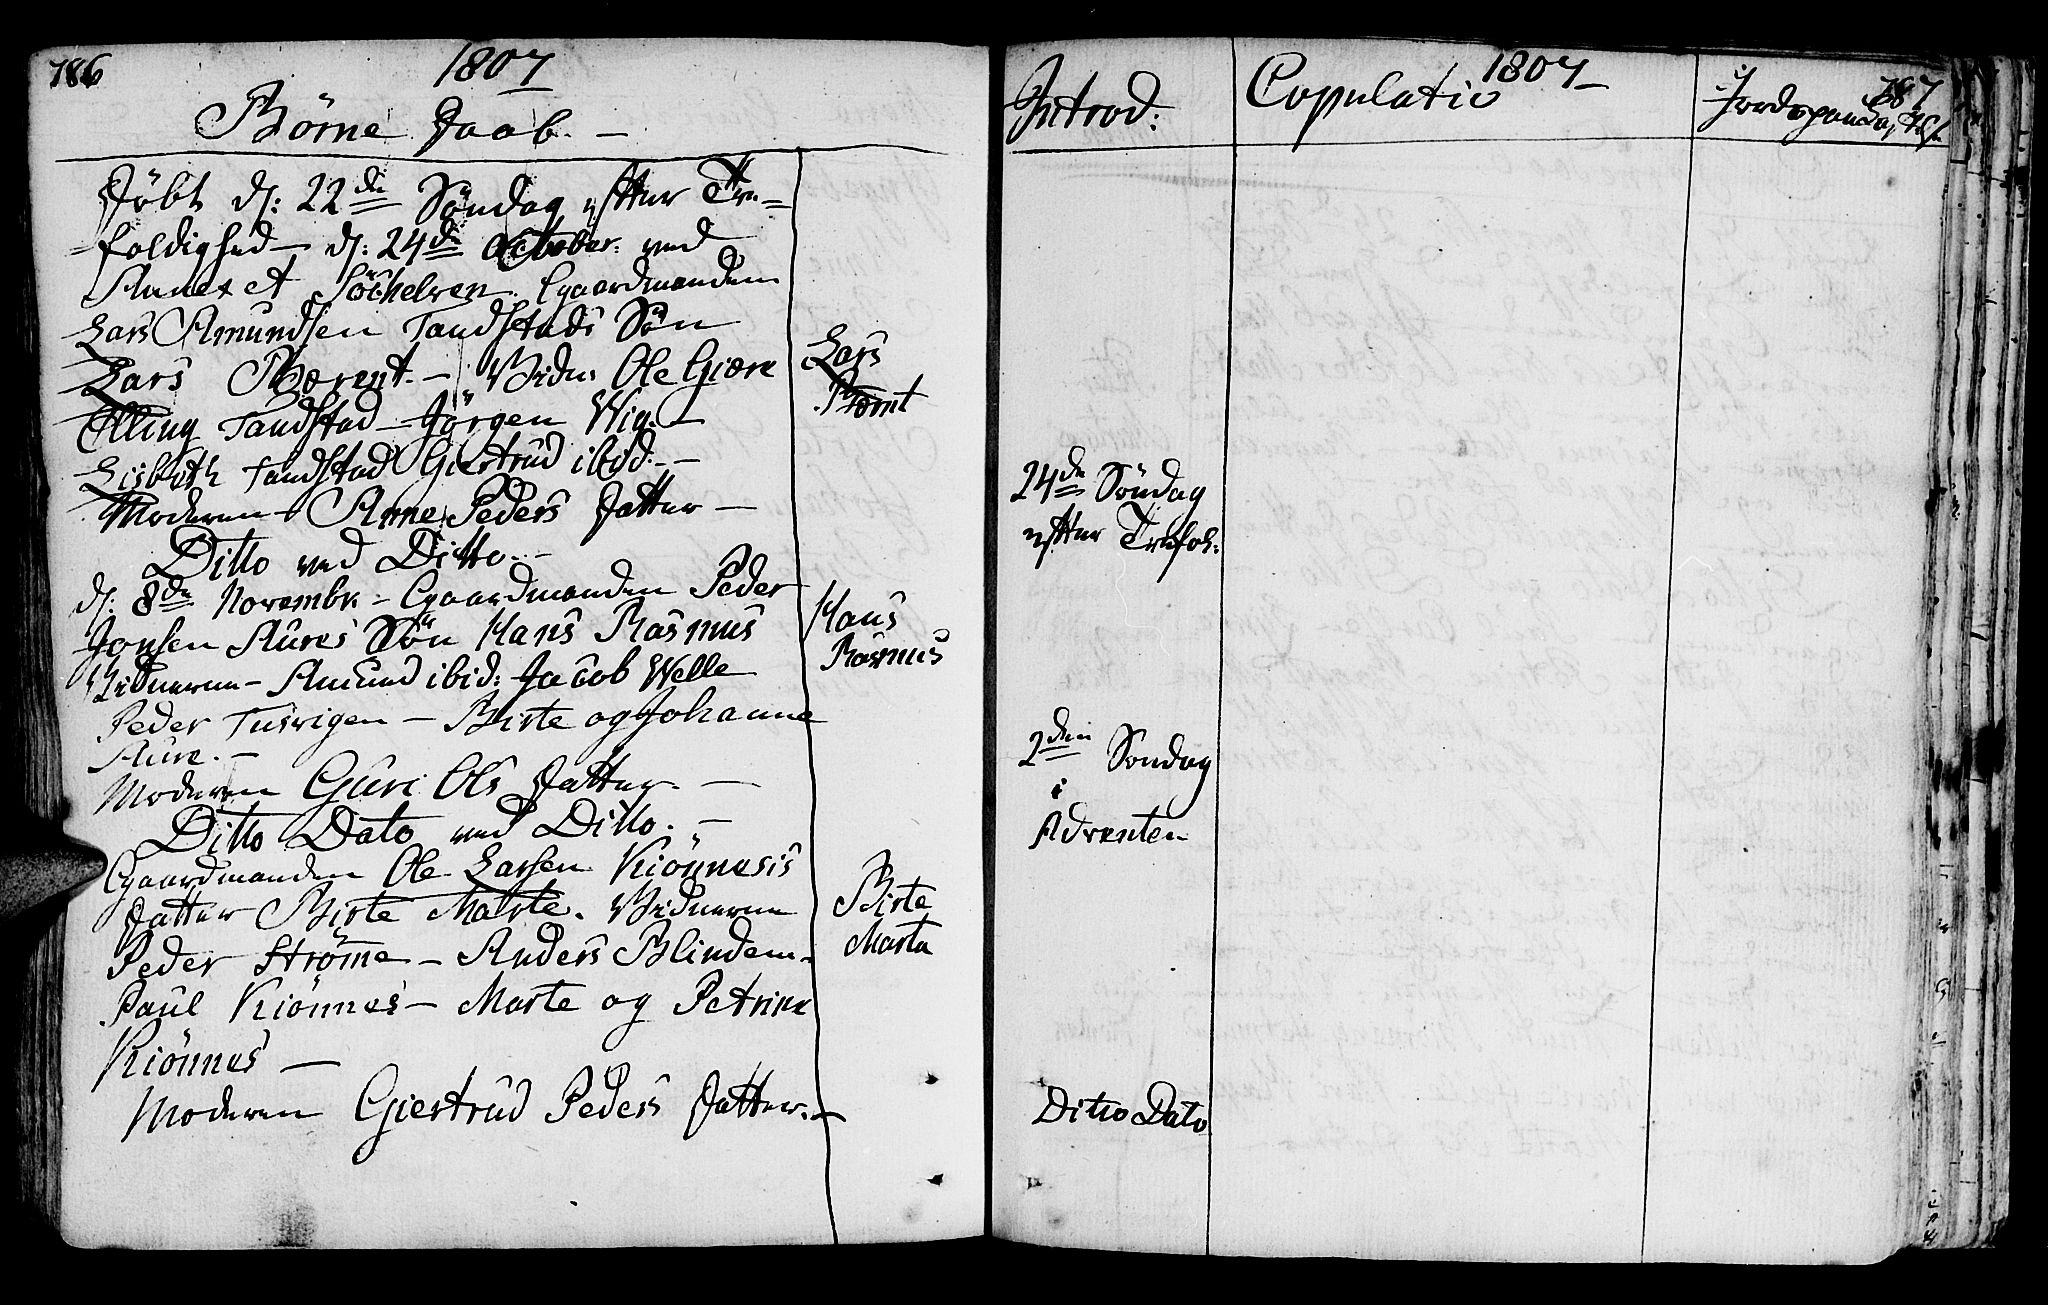 786
1807
Børne Daab. —
Døbt d: 22de Søndag efter Tre=
=foldighed — d: 24de October ved
Annexet Söchelven Gaardmanden
Lars Amundsen Tandstads Søn
Lars Berent. — Vidn: Ole Giære
Elling Tandstad — Jörgen Wig. —
Lisbeth Tandstad Giertrud ibid: —
Moderen — Anne Peders Datter —
Ditto ved Ditto. —
d: 8de Novembr. — Gaardmanden Peder
Jonsen Aures Søn Hans Rasmus
Vidnerne — Amund ibid: Jacob Welle
Peder Tusvigen — Birte og Johanne
Aure. —
Moderen Guri Ols Datter. —
Ditto Dato ved Ditto. —
Gaardmanden Ole Larsen Kiönnesis
Datter Birte Marte. Vidnerne
Peder Strømme — Anders Blindem.
Paul Kiönnes — Marte og Petrine
Kiönnes —
Moderen Giertrud Peders Datter. —
Lars
Bernt
Hans
Rasmus
Birte
Marta
1807 —
787
Introd:
Copulatio
24de Søndag
efter Trefol:
2den Søndag
i
Adventen
Ditto Dato